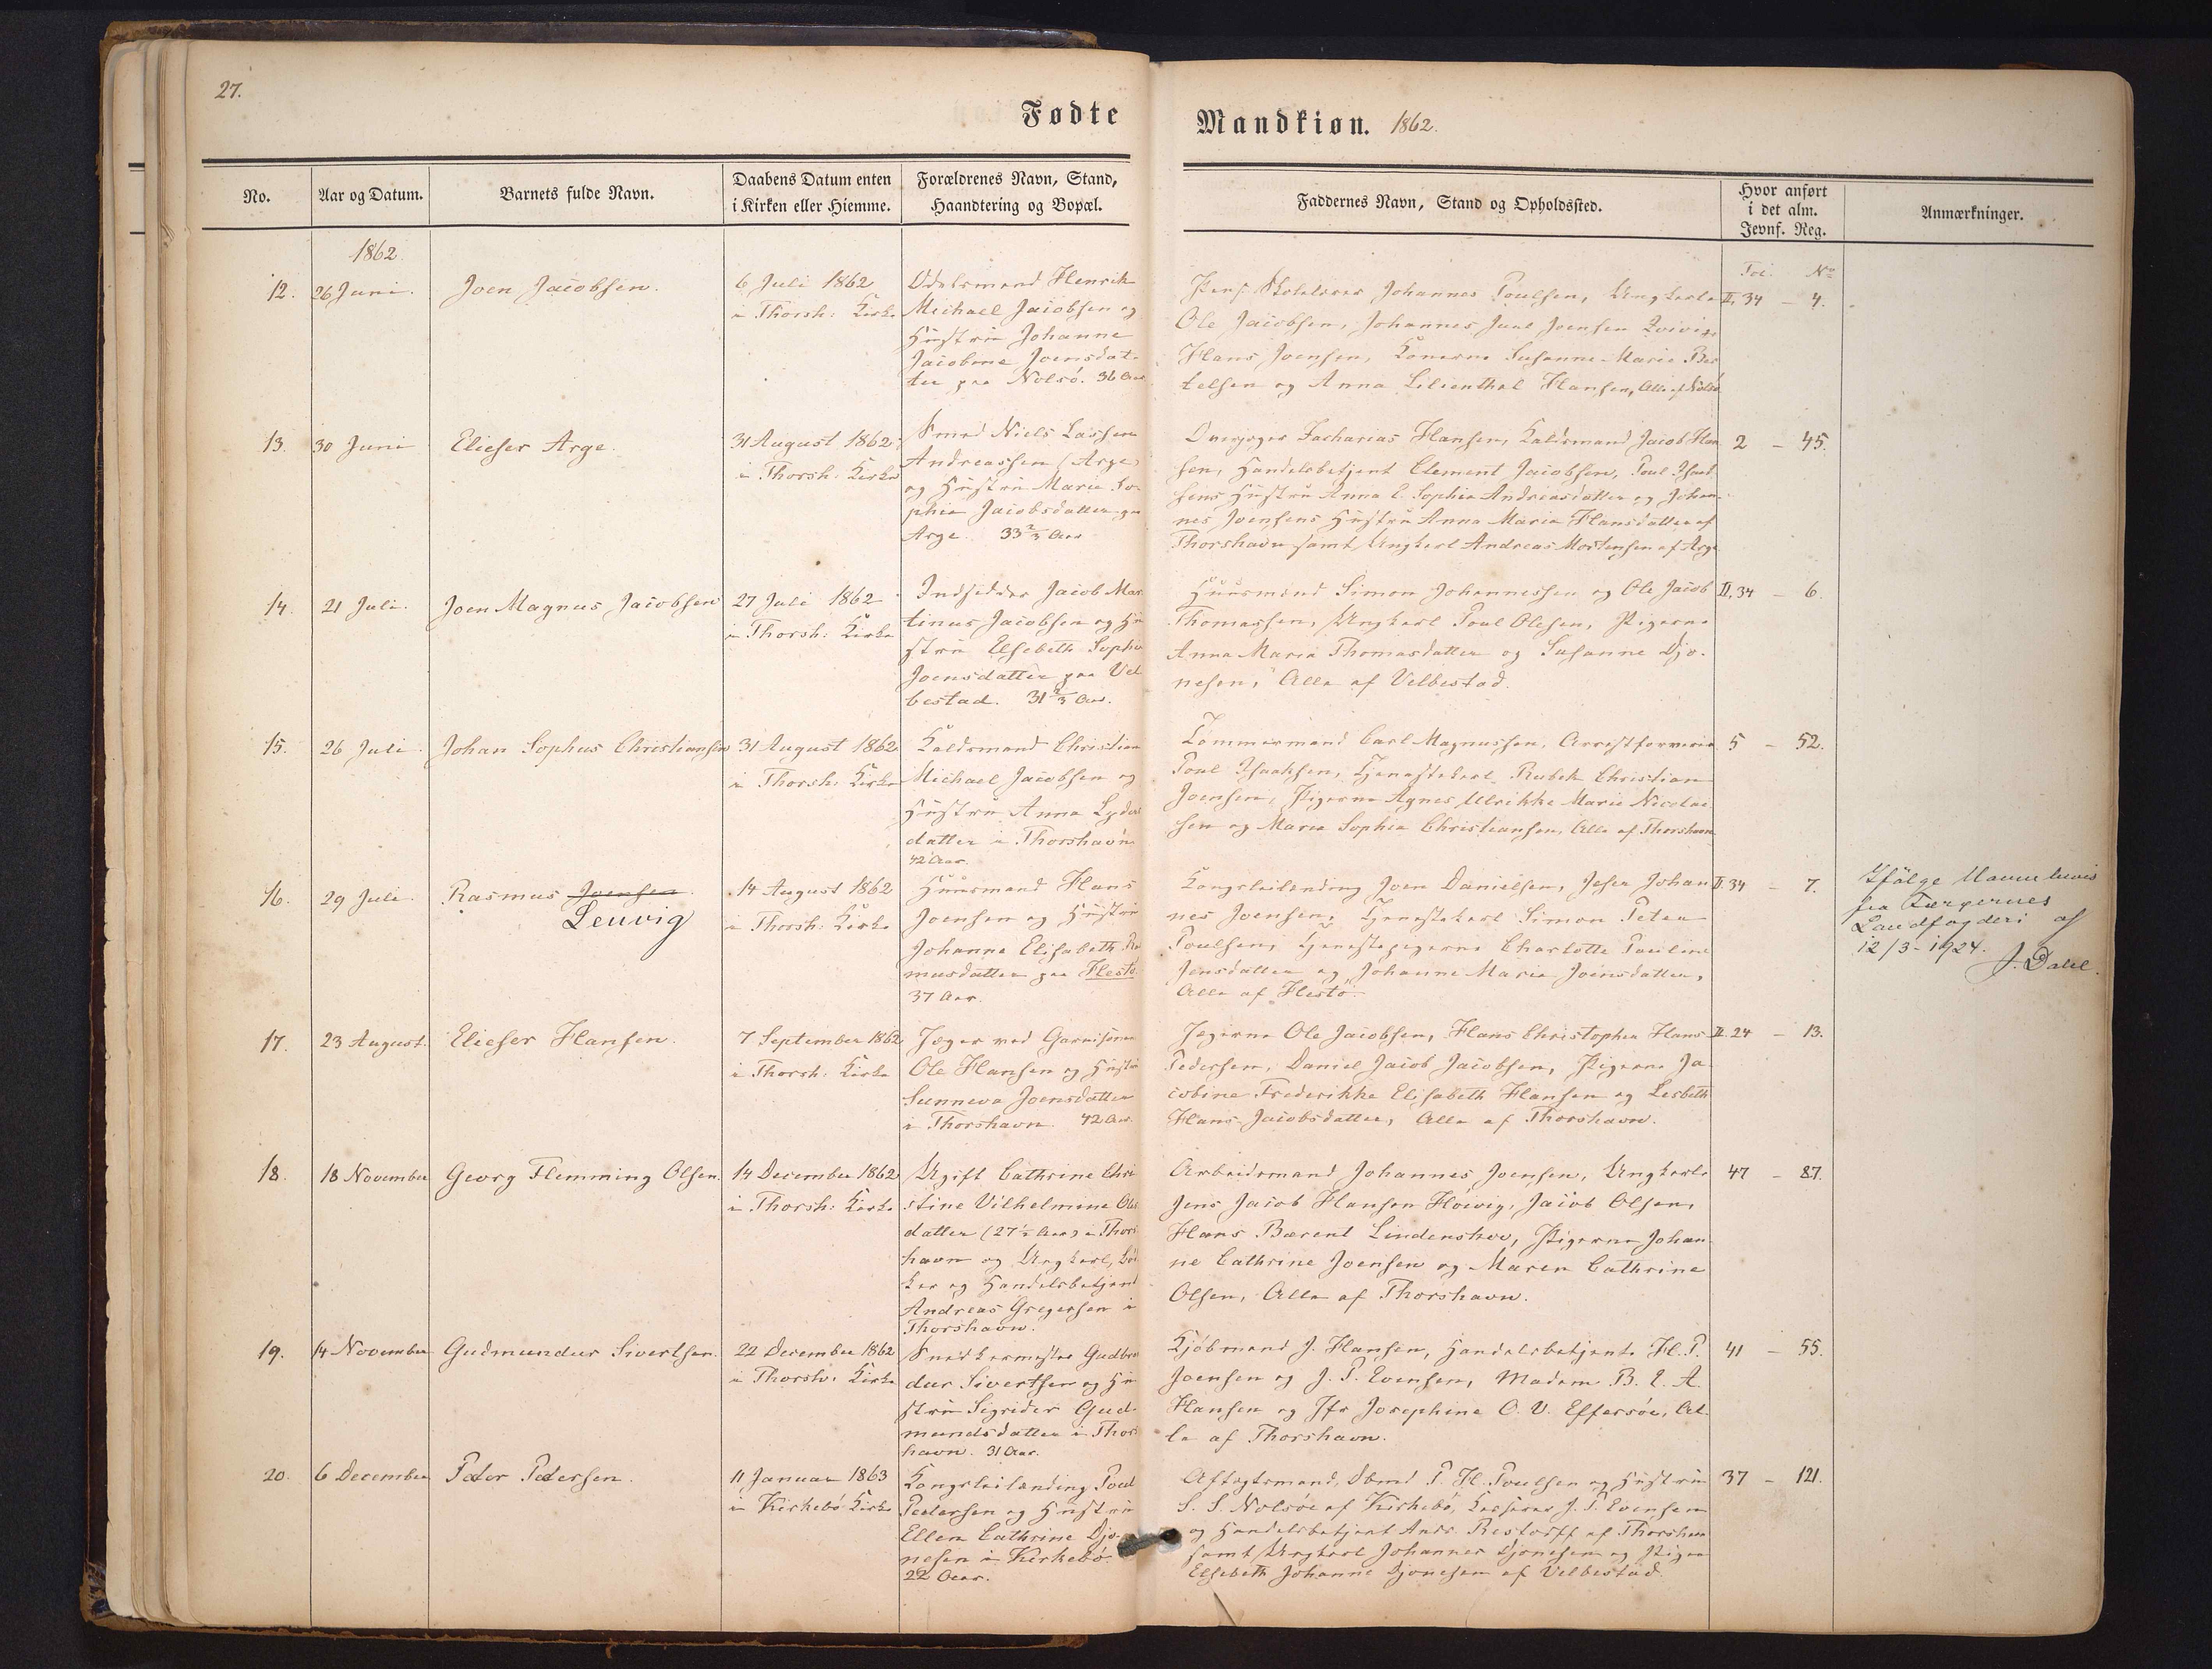 27.
Fødte
Mandkiøn. 1862.
No.
Aar og Datum.
Barnets fulde Navn.
Daabens Datum enten
i Kirken eller Hiemme.
Forældrenes Navn, Stand,
Haandtering og Bopæl.
Faddernes Navn, Stand og Opholdssted.
Hvor anført
i det alm.
Jevnf. Reg.
Anmærkninger.
1862.
Fol. No
12. 26 Juni. Joen Jacobsen.
6 Juli 1862
i Thorsh: Kirke
Odelsmand Henrik
Michael Jacobsen og
Hustru Johanne
Jacobine Joensdat-
ter paa Nolsö. 36 Aar
Skolelærer Johannes Poulsen, Ungkarle
Ole Jacobsen, Johannes Juul Joensen
Hans Joensen, Konerne Susanne Marie Ber
telsen og Anna Lilienthal Hansen, Alle af Nolsö
II, 34 - 4.
13. 30 Juni Elieser Arge.
31 August 1862
i Thorsh: Kirke
Smed Niels Lassen
Andreassen (Arge)
og Hustru Marie So-
phie Jacobsdatter paa
Arge. 33 2/3 Aar
Zacharias Hansen, Kaldsmand Jacob Han
sen, Handelsbetjent Clement Jacobsen, Poul
sens Hustru Anna E. Sophie Andreasdatter og Johan-
nes Joensens Hustru Anna Maria Hansdatter af
Thorshavn samt Ungkarl Andreas Mortensen af Arge
2 - 45.
14. 21 Juli. Joen Magnus Jacobsen
27 Juli 1862
i Thorsh: Kirke
Indsidder Jacob Mar
tinus Jacobsen og Hu
stru Elsebeth Sophie
Joensdatter paa Vel
bestad. 31 2/3 Aar.
Huusmænd Simon Johannessen og Ole Jacob
Thomassen, Ungkarl Poul Olesen, Pigerne
Anna Maria Thomasdatter og Susanne Djo-
nesen, Alle af Velbestad.
II, 34 - 6.
15. 26 Juli. Johan Sophus Christiansen
31 August 1862
i Thorsh: Kirke
Kaldsmand Christian
Michael Jacobsen og
Hustru Anna Lyders
datter i Thorshavn
42 Aar.
Tømmermand Carl Magnussen, Arrestforvarer
Poul Isaaksen, Tjenestekarl Rubek Christian
Joensen, Pigerne Agnes Ulrikke Marie Nicolai
sen og Maria Sophie Christiansen, Alle af Thorshavn
5 - 52.
16. 29 Juli. Rasmus Joensen.
Leuvig
14 August 1862
i Thorsh: Kirke
Huusmand Hans
Joensen og Hustru
Johanne Elisabeth Ras
musdatter paa Hestö.
37 Aar.
Kongsleilending Joen Danielsen, Johan
nes Joensen, Tjenestekarl Simon Peter
Poulsen, Tjenestepigerne Charlotte Pauline
Jensdatter og Johanne Maria Joensdatter,
Alle af Hestö.
II. 34 - 7.
Ifølge Navnebevis
fra Færøernes
Landfogderi af
12/3 - 1924.
J. Dahl.
17. 23 August. Elieser Hansen.
7 September 1862
i Thorsh: Kirke
Jæger ved Garnisonen
Ole Hansen og Hustru
Sunneva Joensdatter
i Thorshavn. 42 Aar.
Jægerne Ole Jacobsen, Hans Christopher Hans
Pedersen, Daniel Jacob Jacobsen, Pigerne Ja
cobine Frederikke Elisabeth Hansen og Lesbeth
Hans-Jacobsdatter, Alle af Thorshavn.
II. 24 - 13.
18. 18 November Georg Flemming Olsen.
14 December 1862
i Thorsh: Kirke
Ugift Cathrine Chri
stine Vilhelmine Ols
datter (27 1/2 Aar) i Thors
havn og Ungkarl, Bød
ker og Handelsbetjent
Andreas Gregersen i
Thorshavn.
Arbeidsmand Johannes Joensen, Ungkarle
Jens Jacob Hansen Höivig, Jacob Olsen,
Hans Barent Lindenskov, Pigerne Johan
ne Cathrine Joensen og Maren Cathrine
Olsen, Alle af Thorshavn.
47 - 87.
19. 14 November Gudmundur Sivertsen.
22 December 1862
i Thorsh: Kirke
Snedkermester Gudbran
dur Sivertsen og Hu
stru Sigrider Gud-
mundsdatter i Thors
havn. 31 Aar.
Kjöbmand J. Hansen, Handelsbetjente H. P.
Joensen og J. P. Evensen, Madam B. E. A.
Hansen og Jfr Josephine O. V. Effersöe, Al-
le af Thorshavn.
41 - 55.
20. 6 December Peter Petersen.
11 Januar 1863
i Kirkebö Kirke
Kongsleilænding Poul
Pedersen og Hustru
Ellen Cathrine Djo-
nesen i Kirkebö.
22 Aar.
Aftægtsmand, Dbmd P. H. Poulsen og Hustru
S. S. Nolsöe af Kirkebö, Kasserer J. P. Evensen
og Handelsbetjent Andr. Restorff af Thorshavn
samt Ungkarl Johannes Djonesen og Pigen
Elsebeth Johanne Djonesen af Velbestad.
37 - 121.